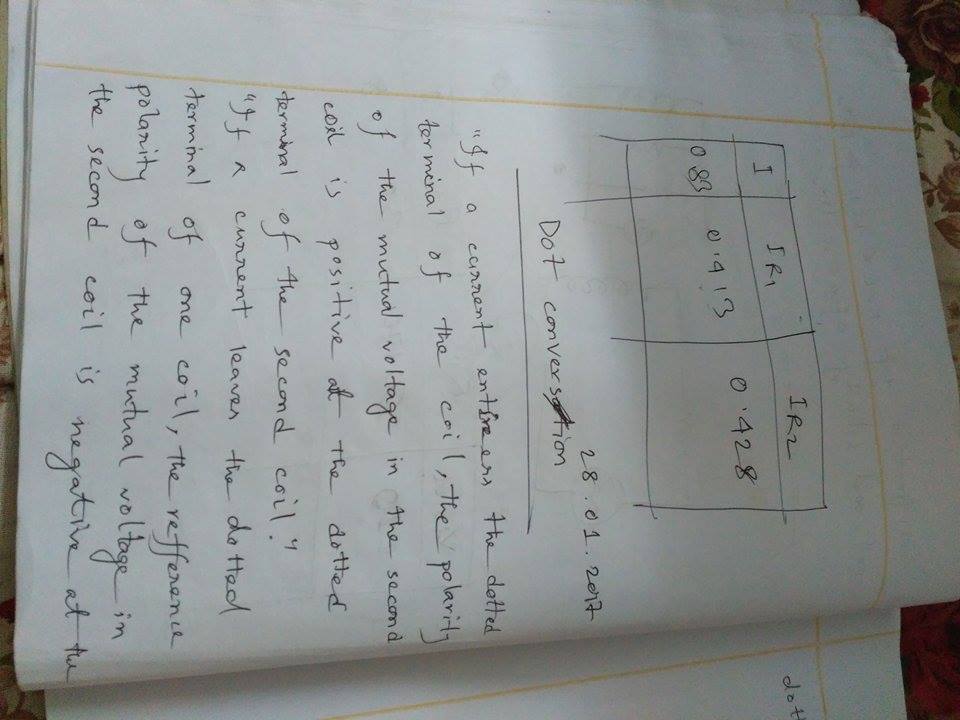 I IR1 IR2
0.83 0.413 0.428
28.01.2017
Dot conversation
"If a current enters the dotted
terminal of the coil, the polarity
of the mutual voltage in the second
coil is positive at the dotted
terminal of the second coil."
"If a current leaves the dotted
terminal of one coil, the refference
polarity of the mutual voltage in
the second coil is negative at the